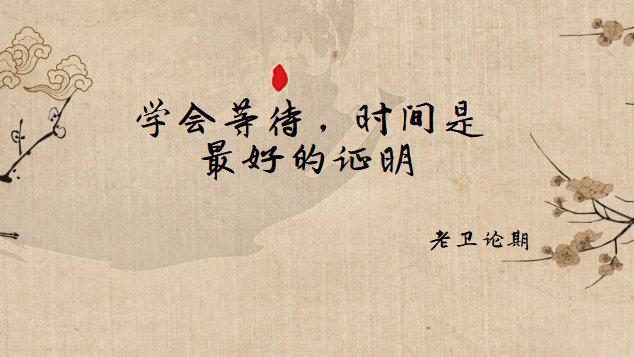 学会等待，时间是
最好的证明
老卫论期